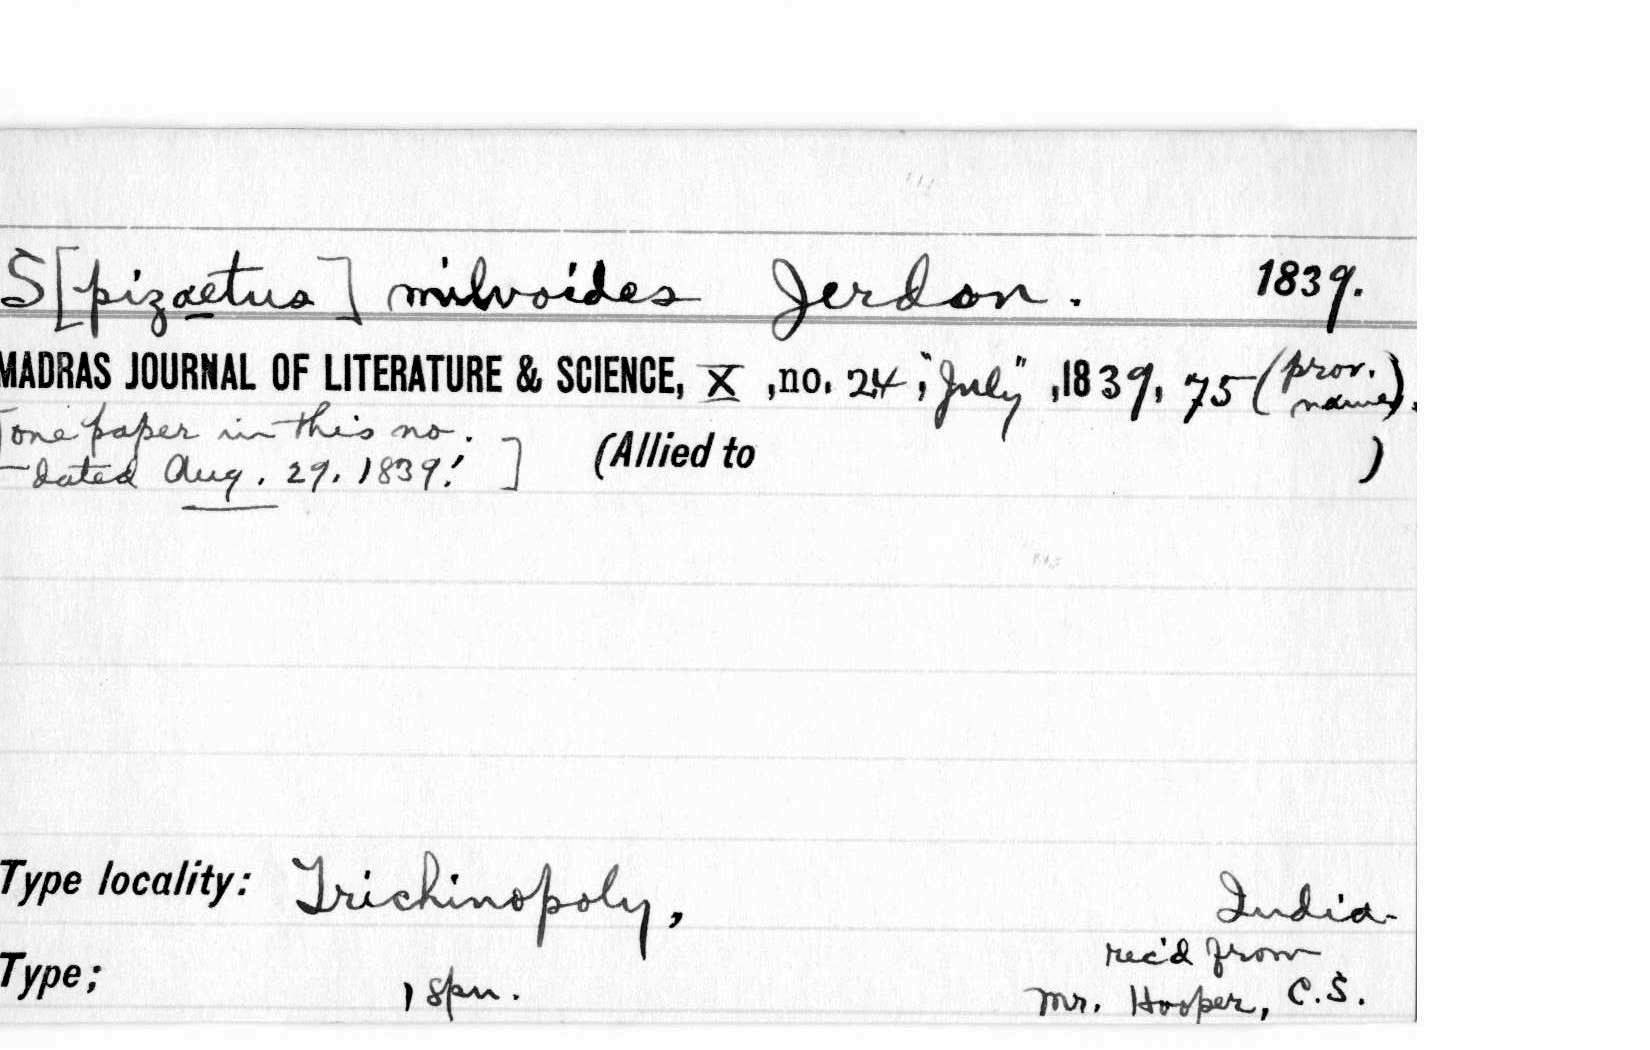 S[pizaetus] milvoides Jerdon. 1839.
MADRAS JOURNAL OF LITERATURE & SCIENCE, X, no. 24, "July", 1839, 75 (prov. name).
[one paper in this no.
—dated Aug. 29, 1839!] (Allied to )
Type locality: Trichinopoly, India
Type; 1 spn. rec'd from
Mr. Hooper, C.S.